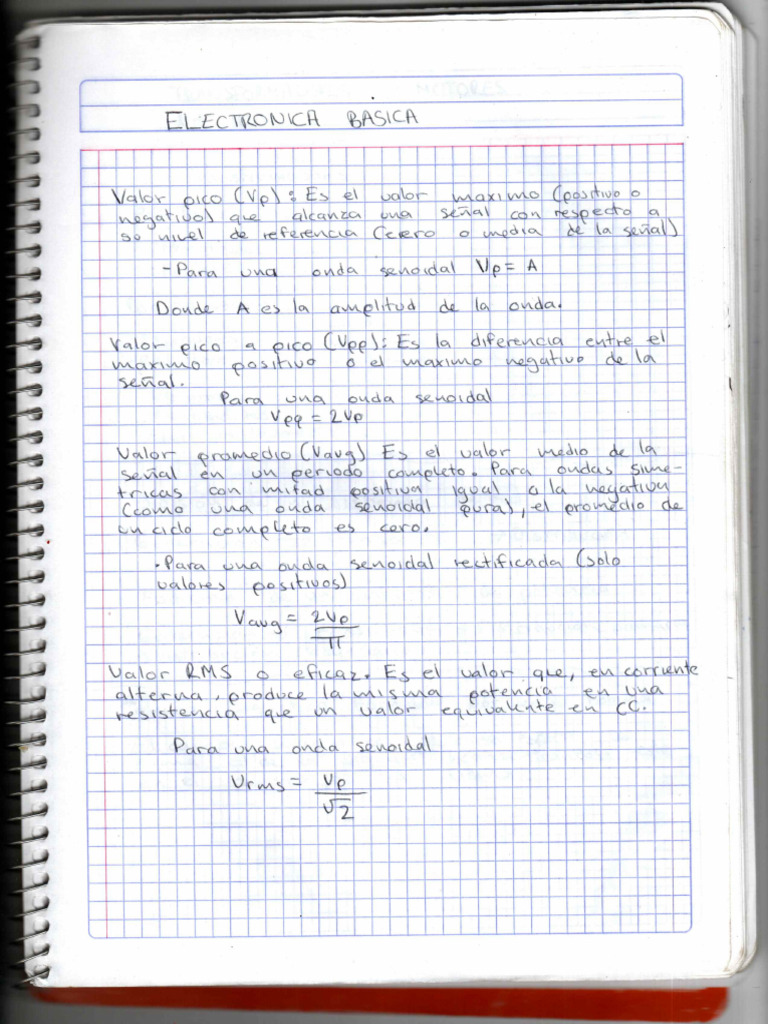 ELECTRONICA BASICA
Valor pico (Vp): Es el valor maximo (positivo o
negativo) que alcanza una señal con respecto a
so nivel de referencia (cero o media de la señal)
-Para una onda senoidal Vp= A
Donde A es la amplitud de la onda.
Valor pico a pico (Vpp): Es la diferencia entre el
maximo positivo o el maximo negativo de la
señal.
Para una onda senoidal
Vpp = 2Vp
Valor promedio (Vavg) Es el valor medio de la
señal en un periodo completo. Para ondas sime-
tricas con mitad positiva igual a la negativa
(como una onda senoidal pura), el promedio de
un ciclo completo es cero.
·Para una onda senoidal rectificada (solo
valores positivos)
Vavg = 2Vp
π
Valor RMS o eficaz. Es el valor que, en corriente
alterna, produce la misma potencia en una
resistencia que un valor equivalente en CC.
Para una onda senoidal
Vrms = Vp
√2